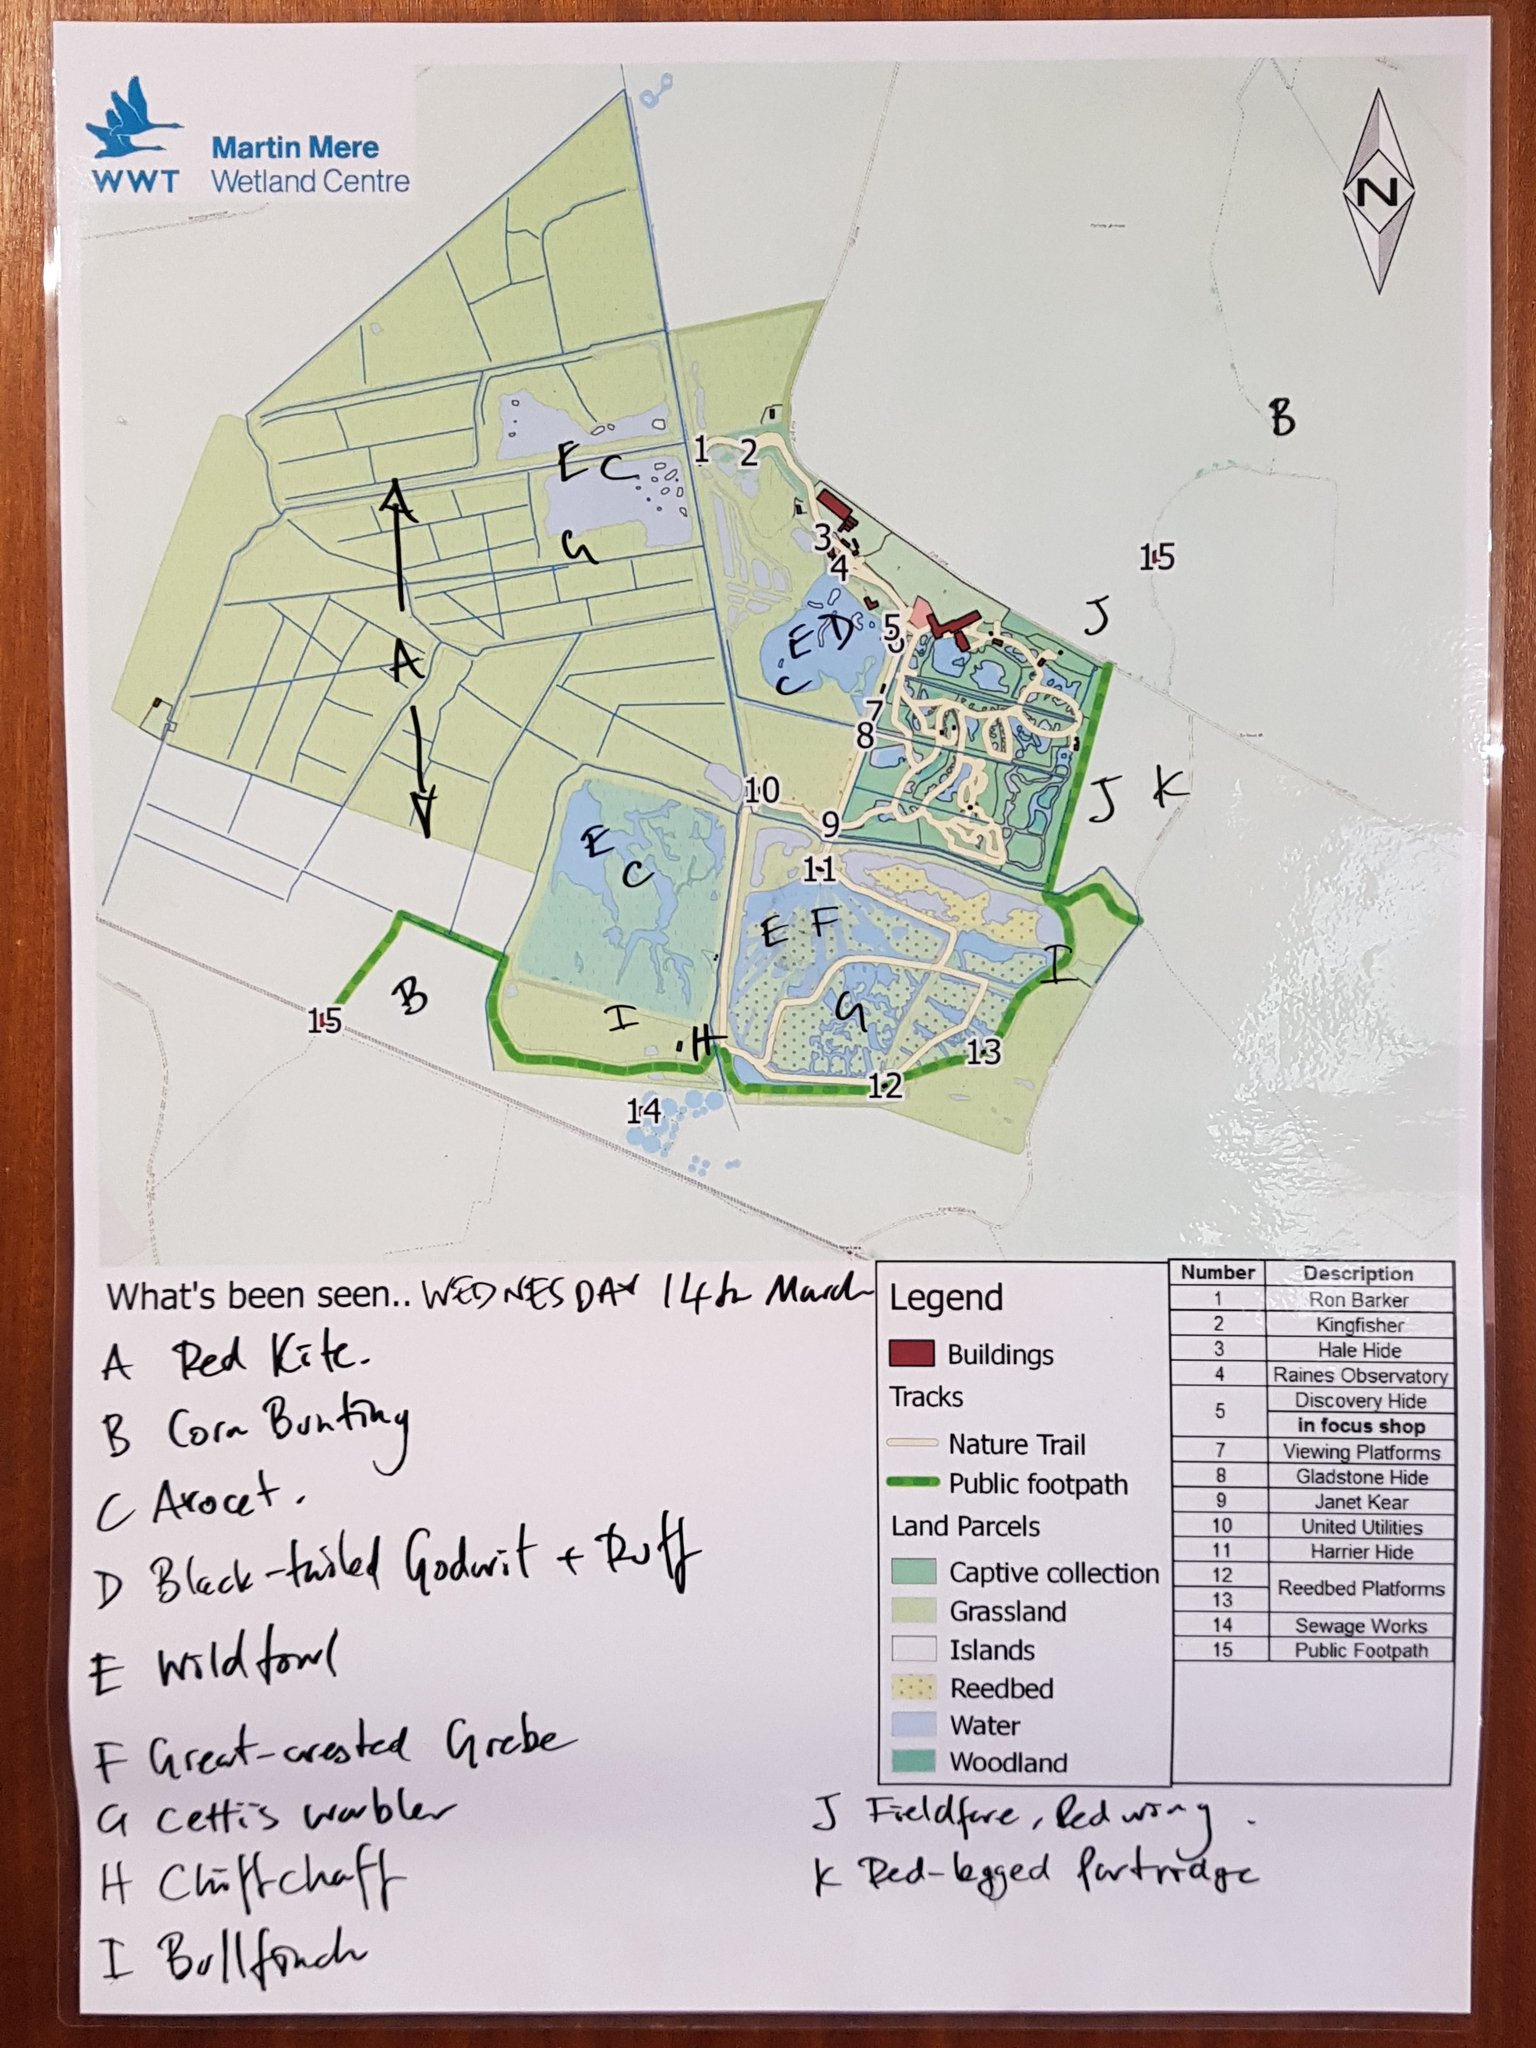 WWT
Martin Mere
Wetland Centre
N
B
1
2
E C
A
G
3
4
15
J
5
E D
C
A
7
8
J K
10
9
E
C
11
E F
I
B
G
15
I
H
13
12
14
What's been seen.. WEDNESDAY 14th March
A Red Kite.
B Corn Bunting
C Avocet.
D Black-tailed Godwit + Ruff
E Wildfowl
F Great-crested Grebe
G Cetti's warbler
H Chiffchaff
I Bullfinch
Legend
Buildings
Tracks
Nature Trail
Public footpath
Land Parcels
Captive collection
Grassland
Islands
Reedbed
Water
Woodland
Number Description
1 Ron Barker
2 Kingfisher
3 Hale Hide
4 Raines Observatory
5 Discovery Hide
in focus shop
7 Viewing Platforms
8 Gladstone Hide
9 Janet Kear
10 United Utilities
11 Harrier Hide
12 Reedbed Platforms
13
14 Sewage Works
15 Public Footpath
J Fieldfare, Redwing.
K Red-legged Partridge